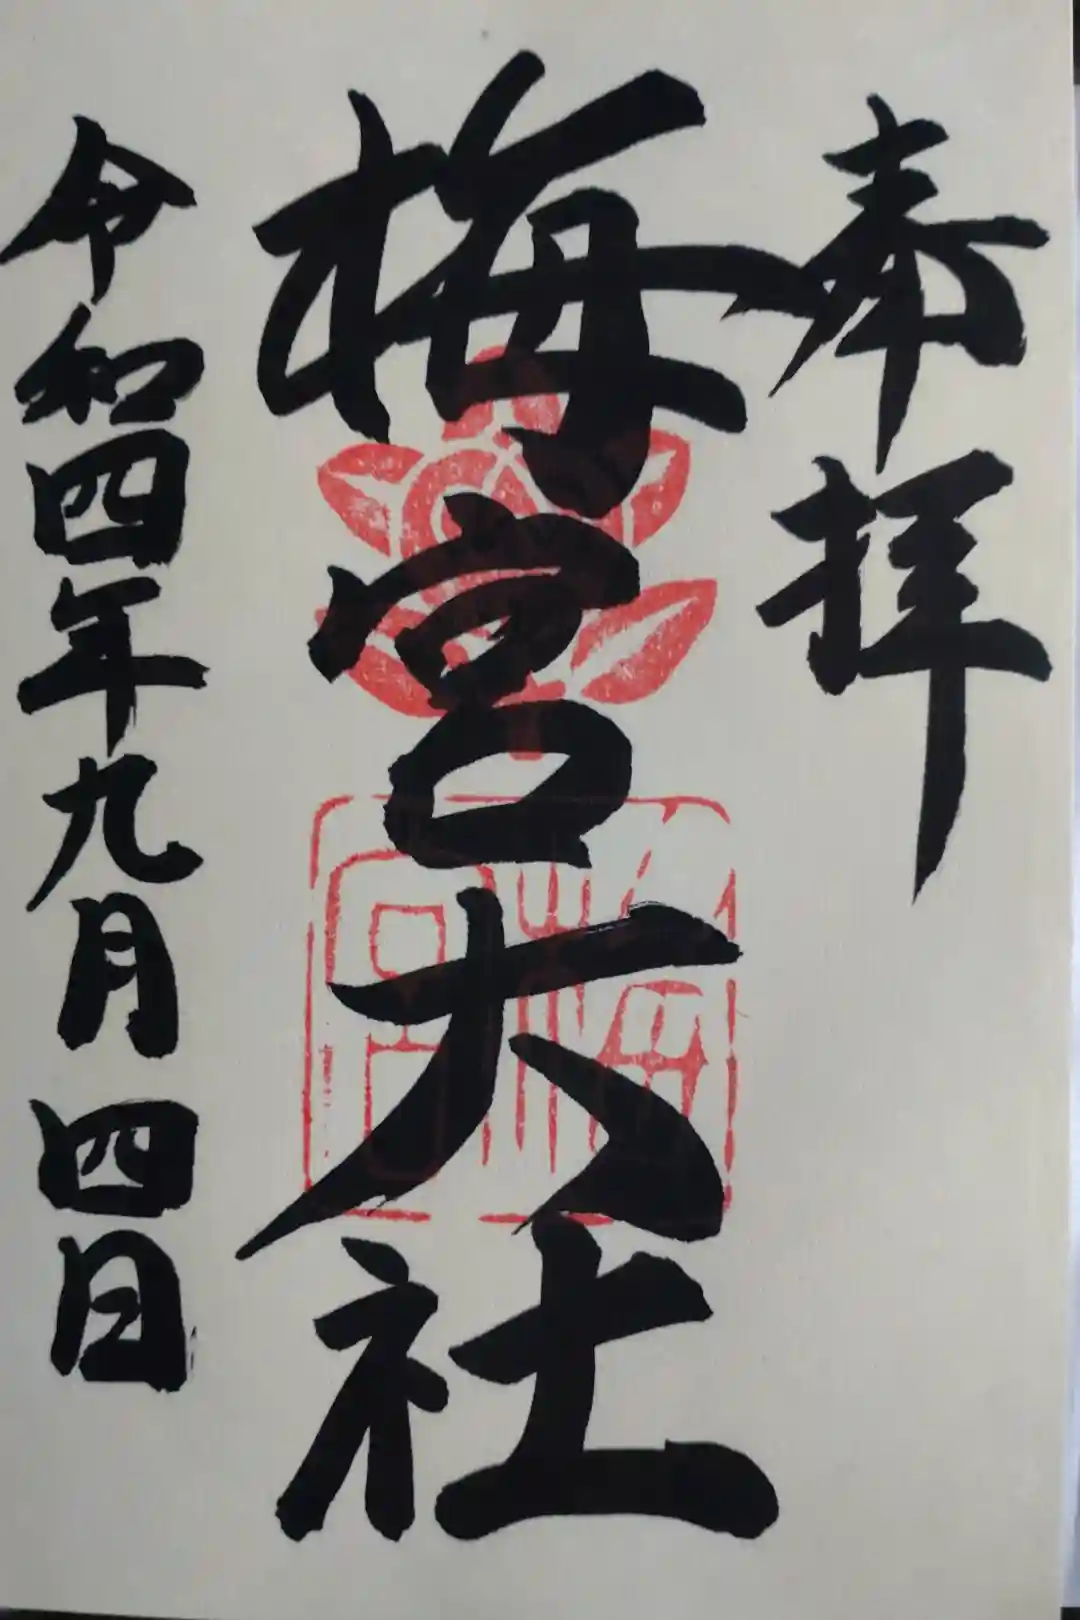 奉拝
梅宮大社
令和四年九月四日
梅宮